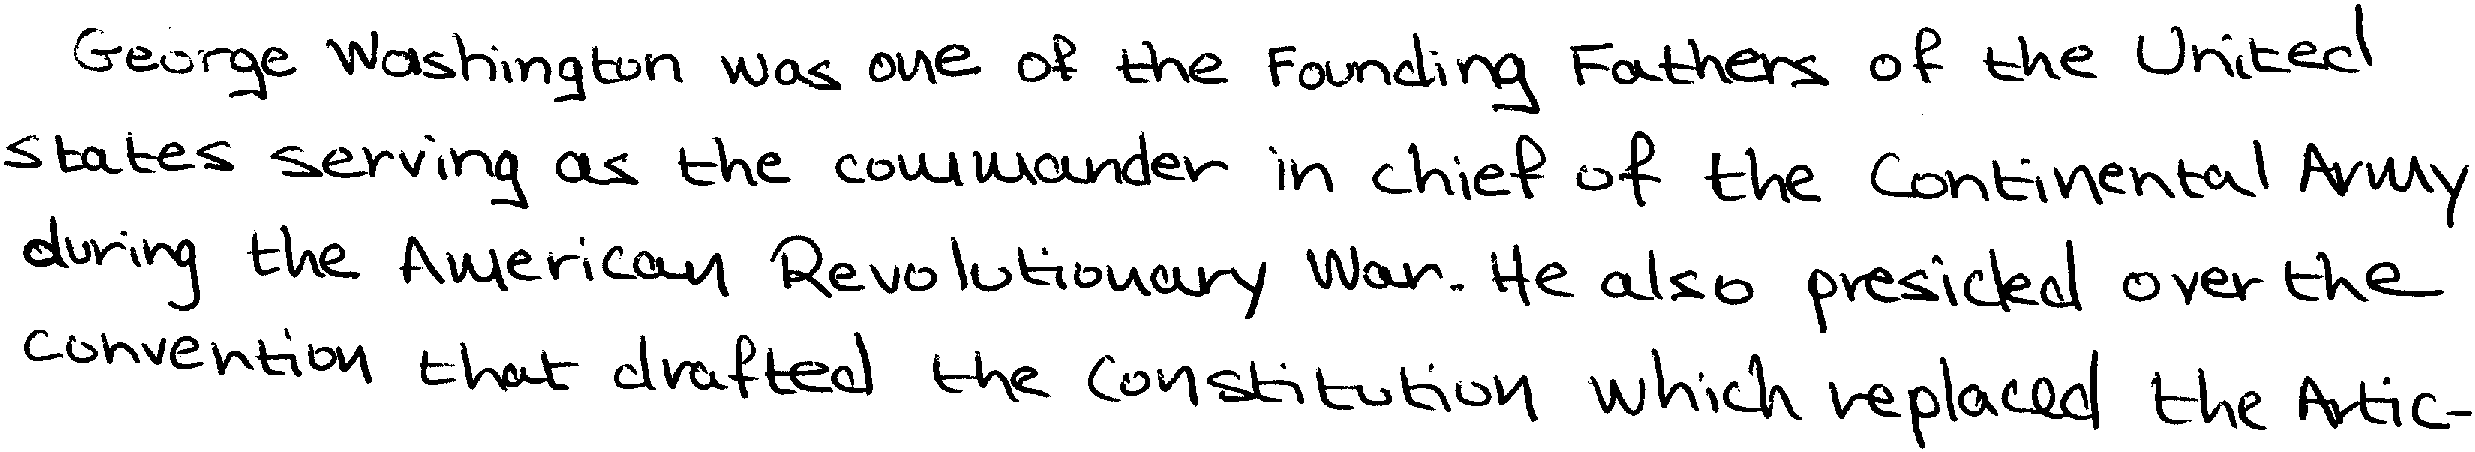 George Washington was one of the Founding Fathers of the United
states serving as the commander in chief of the Continental Army
during the American Revolutionary War. He also presided over the
convention that drafted the Constitution which replaced the Artic-